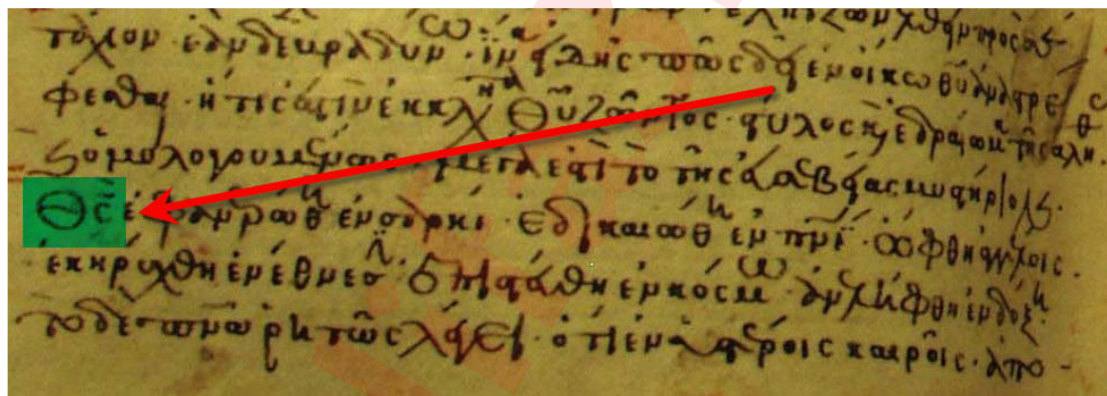 τάχιον · ἐὰν δὲ βραδύνω · ἵνα εἰδῆς πῶς δεῖ ἐν οἴκω θῦ ἀναστρέ
φεσθαι · ἥτις ἐστὶν ἐκκλη θῦ ζῶντος · στύλος κ ἑδραίωμα τῆς ἀλη
ὁμολογουμένως μέγα ἐστὶ τὸ τῆς
Θς ἐφανερώθη ἐν σαρκί · ἐδικαιώθη ἐν πνι · ὤφθη ἀγγέλοις ·
ἐκηρύχθη ἐν ἔθνεσιν · ἐπιστεύθη ἐν κόσμω · ἀνελήφθη ἐν δόξη ·
τὸ δὲ πνα ῥητῶς λέγει · ὅτι ἐν ὑστέροις καιροῖς · ἀπο-